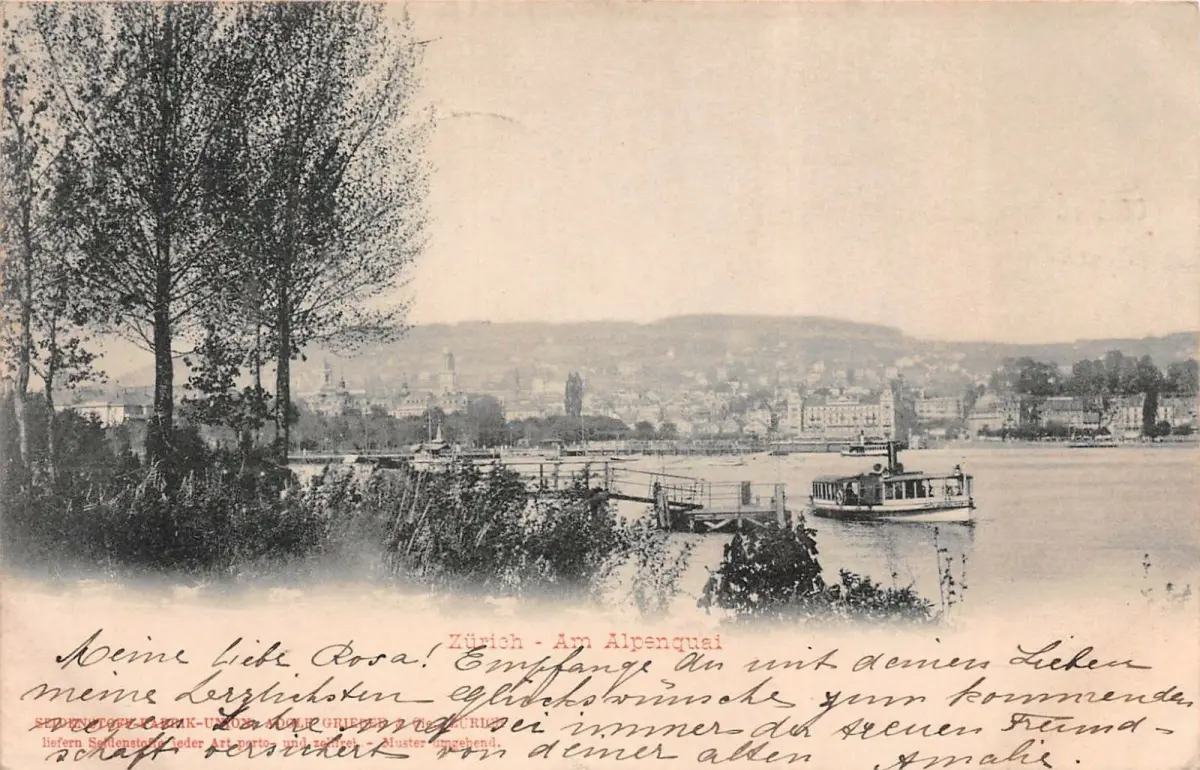 Zürich - Am Alpenquai
Meine liebe Rosa! Empfange du mit deinen Lieben
meine herzlichsten Glückswünsche zum kommenden
SEIDENSTOFF-FABRIK-UNION, ADOLF GRIEDER & Cie., ZÜRICH
neuen und sei immer der treuen Freund-
liefern Seidenstoffe jeder Art porto- und zollfrei. - Muster umgehend.
schaft versichert von deiner alten Amalie.